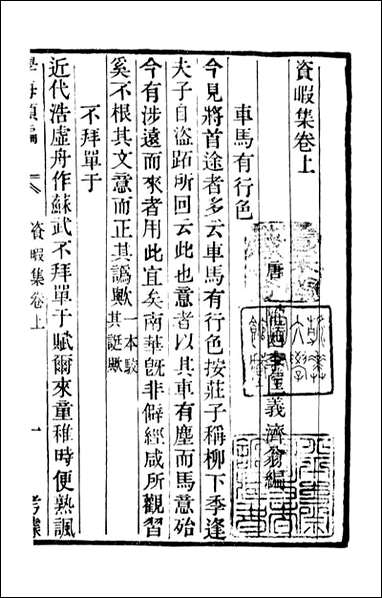 資暇集卷上
唐 隴西李匡乂濟翁編
車馬有行色
今見將首途者多云車馬有行色按莊子稱柳下季逢
夫子自盜跖所回云此也意者以其車有塵而馬意殆
今有涉遠而來者用此宜矣南華旣非僻經咸所觀習
奚不根其文意而正其譌歟一本駮其誑歟
不拜單于
近代浩虛舟作蘇武不拜單于賦爾來童稚時便熟諷
學海類編
資暇集卷上
一
考據